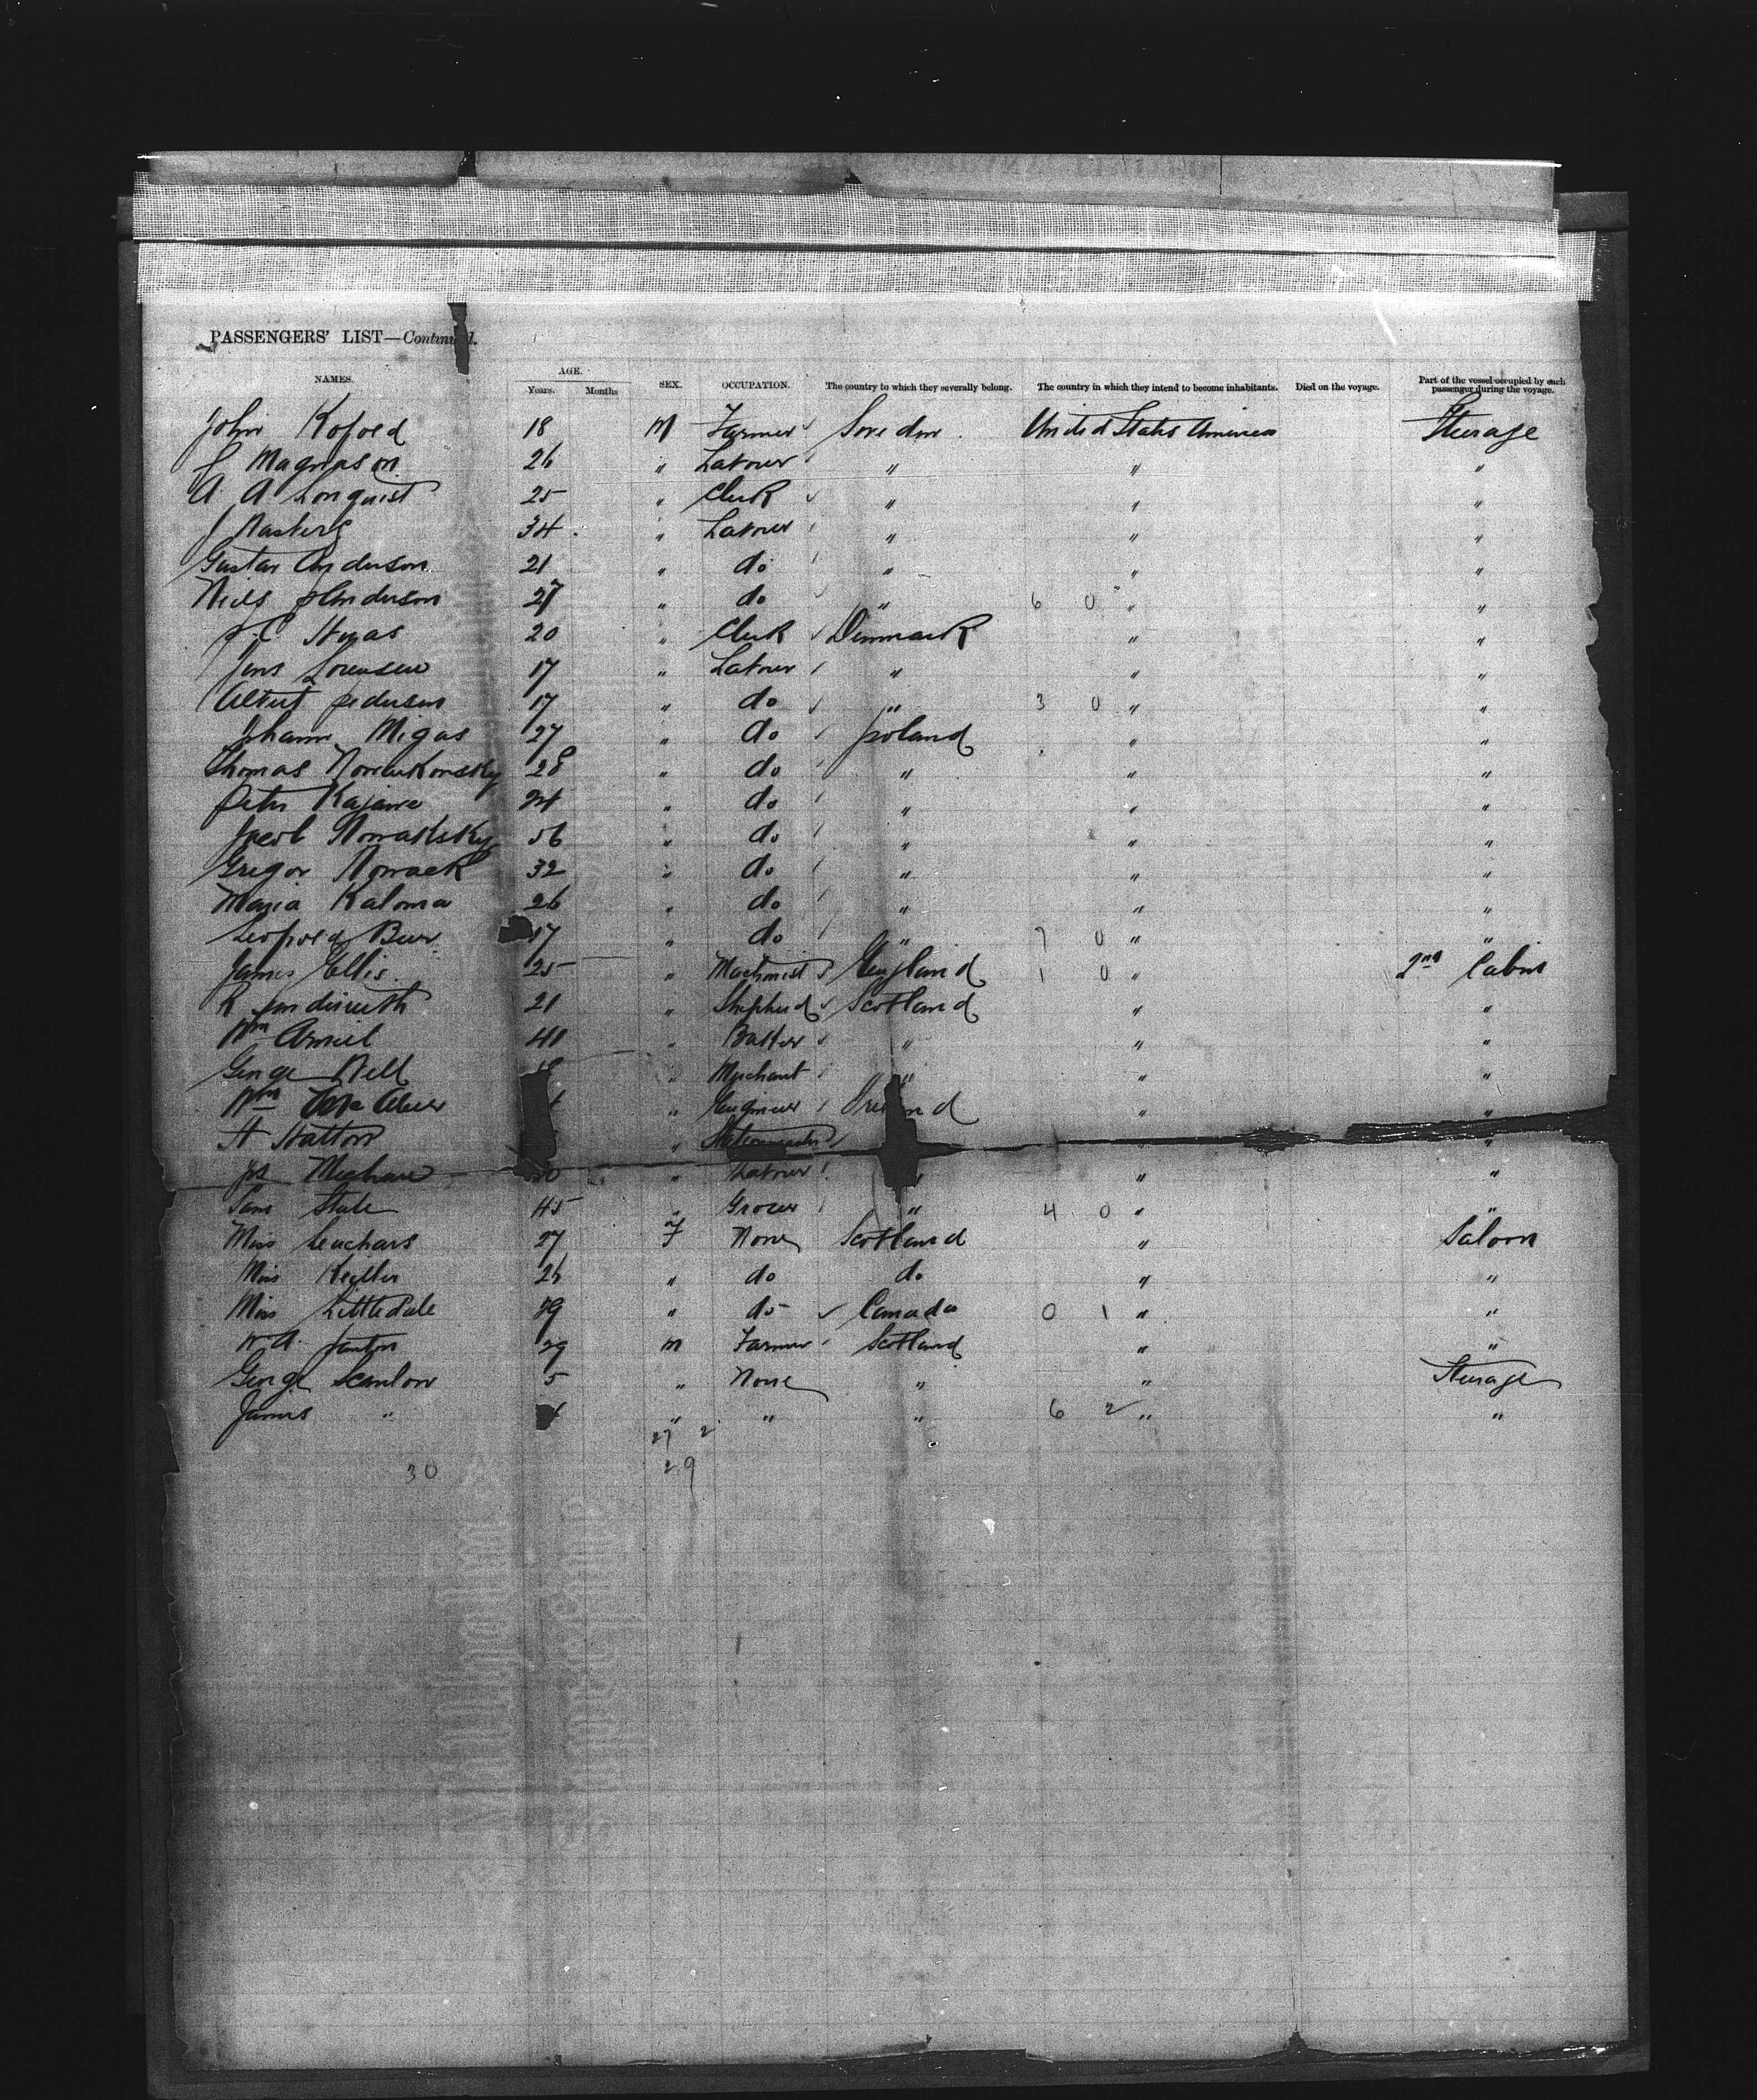 PASSENGERS' LIST—Continued.
NAMES. AGE. Years. Months SEX. OCCUPATION. The country to which they severally belong. The country in which they intend to become inhabitants. Died on the voyage. Part of the vessel occupied by each passenger during the voyage.
John Kofoed 18 M Farmer Sweden United States America Steerage
J Magnason 26 " Labourer " " "
A A Lonquist 25 " Clerk " " "
J 34 " Labourer " " "
Gustav Anderson 21 " do " " "
Niels P Anderson 27 " do " 6 0 " "
J.C. 20 " Clerk Denmark " "
Jens Sorensen 17 " Labourer " " "
Albert Pedersen 17 " do " 3 0 " "
Johann Migas 27 " do Poland " "
Thomas 28 " do " " "
Peter Kajawa 24 " do " " "
Jacob Nowaksky 56 " do " " "
Gregor Nowack 32 " do " " "
Maria Kaloma 26 " do " " "
Leopold 17 " do " 7 0 " "
James Ellis 25 " Machinist England 1 0 " 2nd Cabin
R 21 " Shepherd Scotland " "
Wm 40 " Baker " " "
George Bell " Merchant " " "
Wm " Engineer Ireland " "
H Hatton " " "
Jas Meehan " Labourer " " "
Sam 45 " Grocer " 4 0 " "
Miss Leuchars 27 F None Scotland " Saloon
Miss Keiller 26 " do do " "
Miss Littledale 29 " do Canada 0 1 " "
W A 29 M Farmer Scotland " "
George Scanlon 5 " None " " Steerage
James " " " " 6 2 " "
27 2
30 29